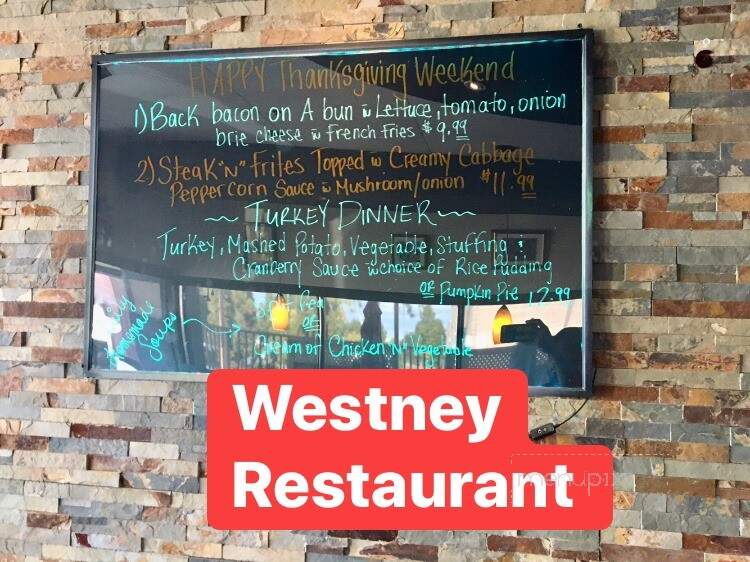 HAPPY Thanksgiving Weekend
1) Back bacon on A bun w Lettuce, tomato, onion
brie cheese w French Fries $9.99
2) Steak "N" Frites Topped w Creamy Cabbage
Peppercorn Sauce w Mushroom/onion $11.99
~ TURKEY DINNER ~
Turkey, Mashed Potato, Vegetable, Stuffing :
Cranberry Sauce w choice of Rice Pudding
OR Pumpkin Pie 12.99
Homemade
Soups
Pea
OR
Cream of Chicken "N" Vegetable
Westney
Restaurant
menupix